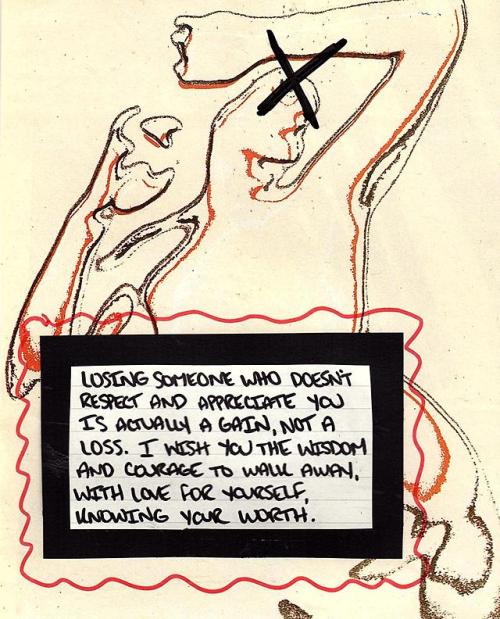 LOSING SOMEONE WHO DOESN'T
RESPECT AND APPRECIATE YOU
IS ACTUALLY A GAIN, NOT A
LOSS. I WISH YOU THE WISDOM
AND COURAGE TO WALK AWAY,
WITH LOVE FOR YOURSELF,
KNOWING YOUR WORTH.